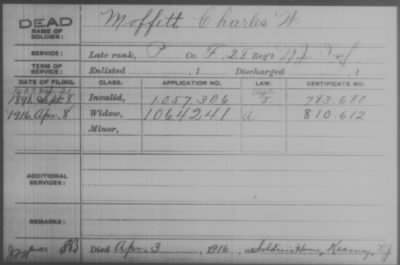 DEAD
NAME OF SOLDIER: Moffett Charles W.
SERVICE: Late rank, P Co. F, 28 Reg't N.J. Inf
TERM OF SERVICE: Enlisted , 1 Discharged , 1
DATE OF FILING. CLASS. APPLICATION NO. LAW. CERTIFICATE NO.
Invalid, 1.057.306
1916 Apr. 8 Widow, 1064241 a 810.612
Minor,
ADDITIONAL SERVICES:
REMARKS:
Died Apr. 3 , 1916, Soldiers Home, Kearney, N.J.